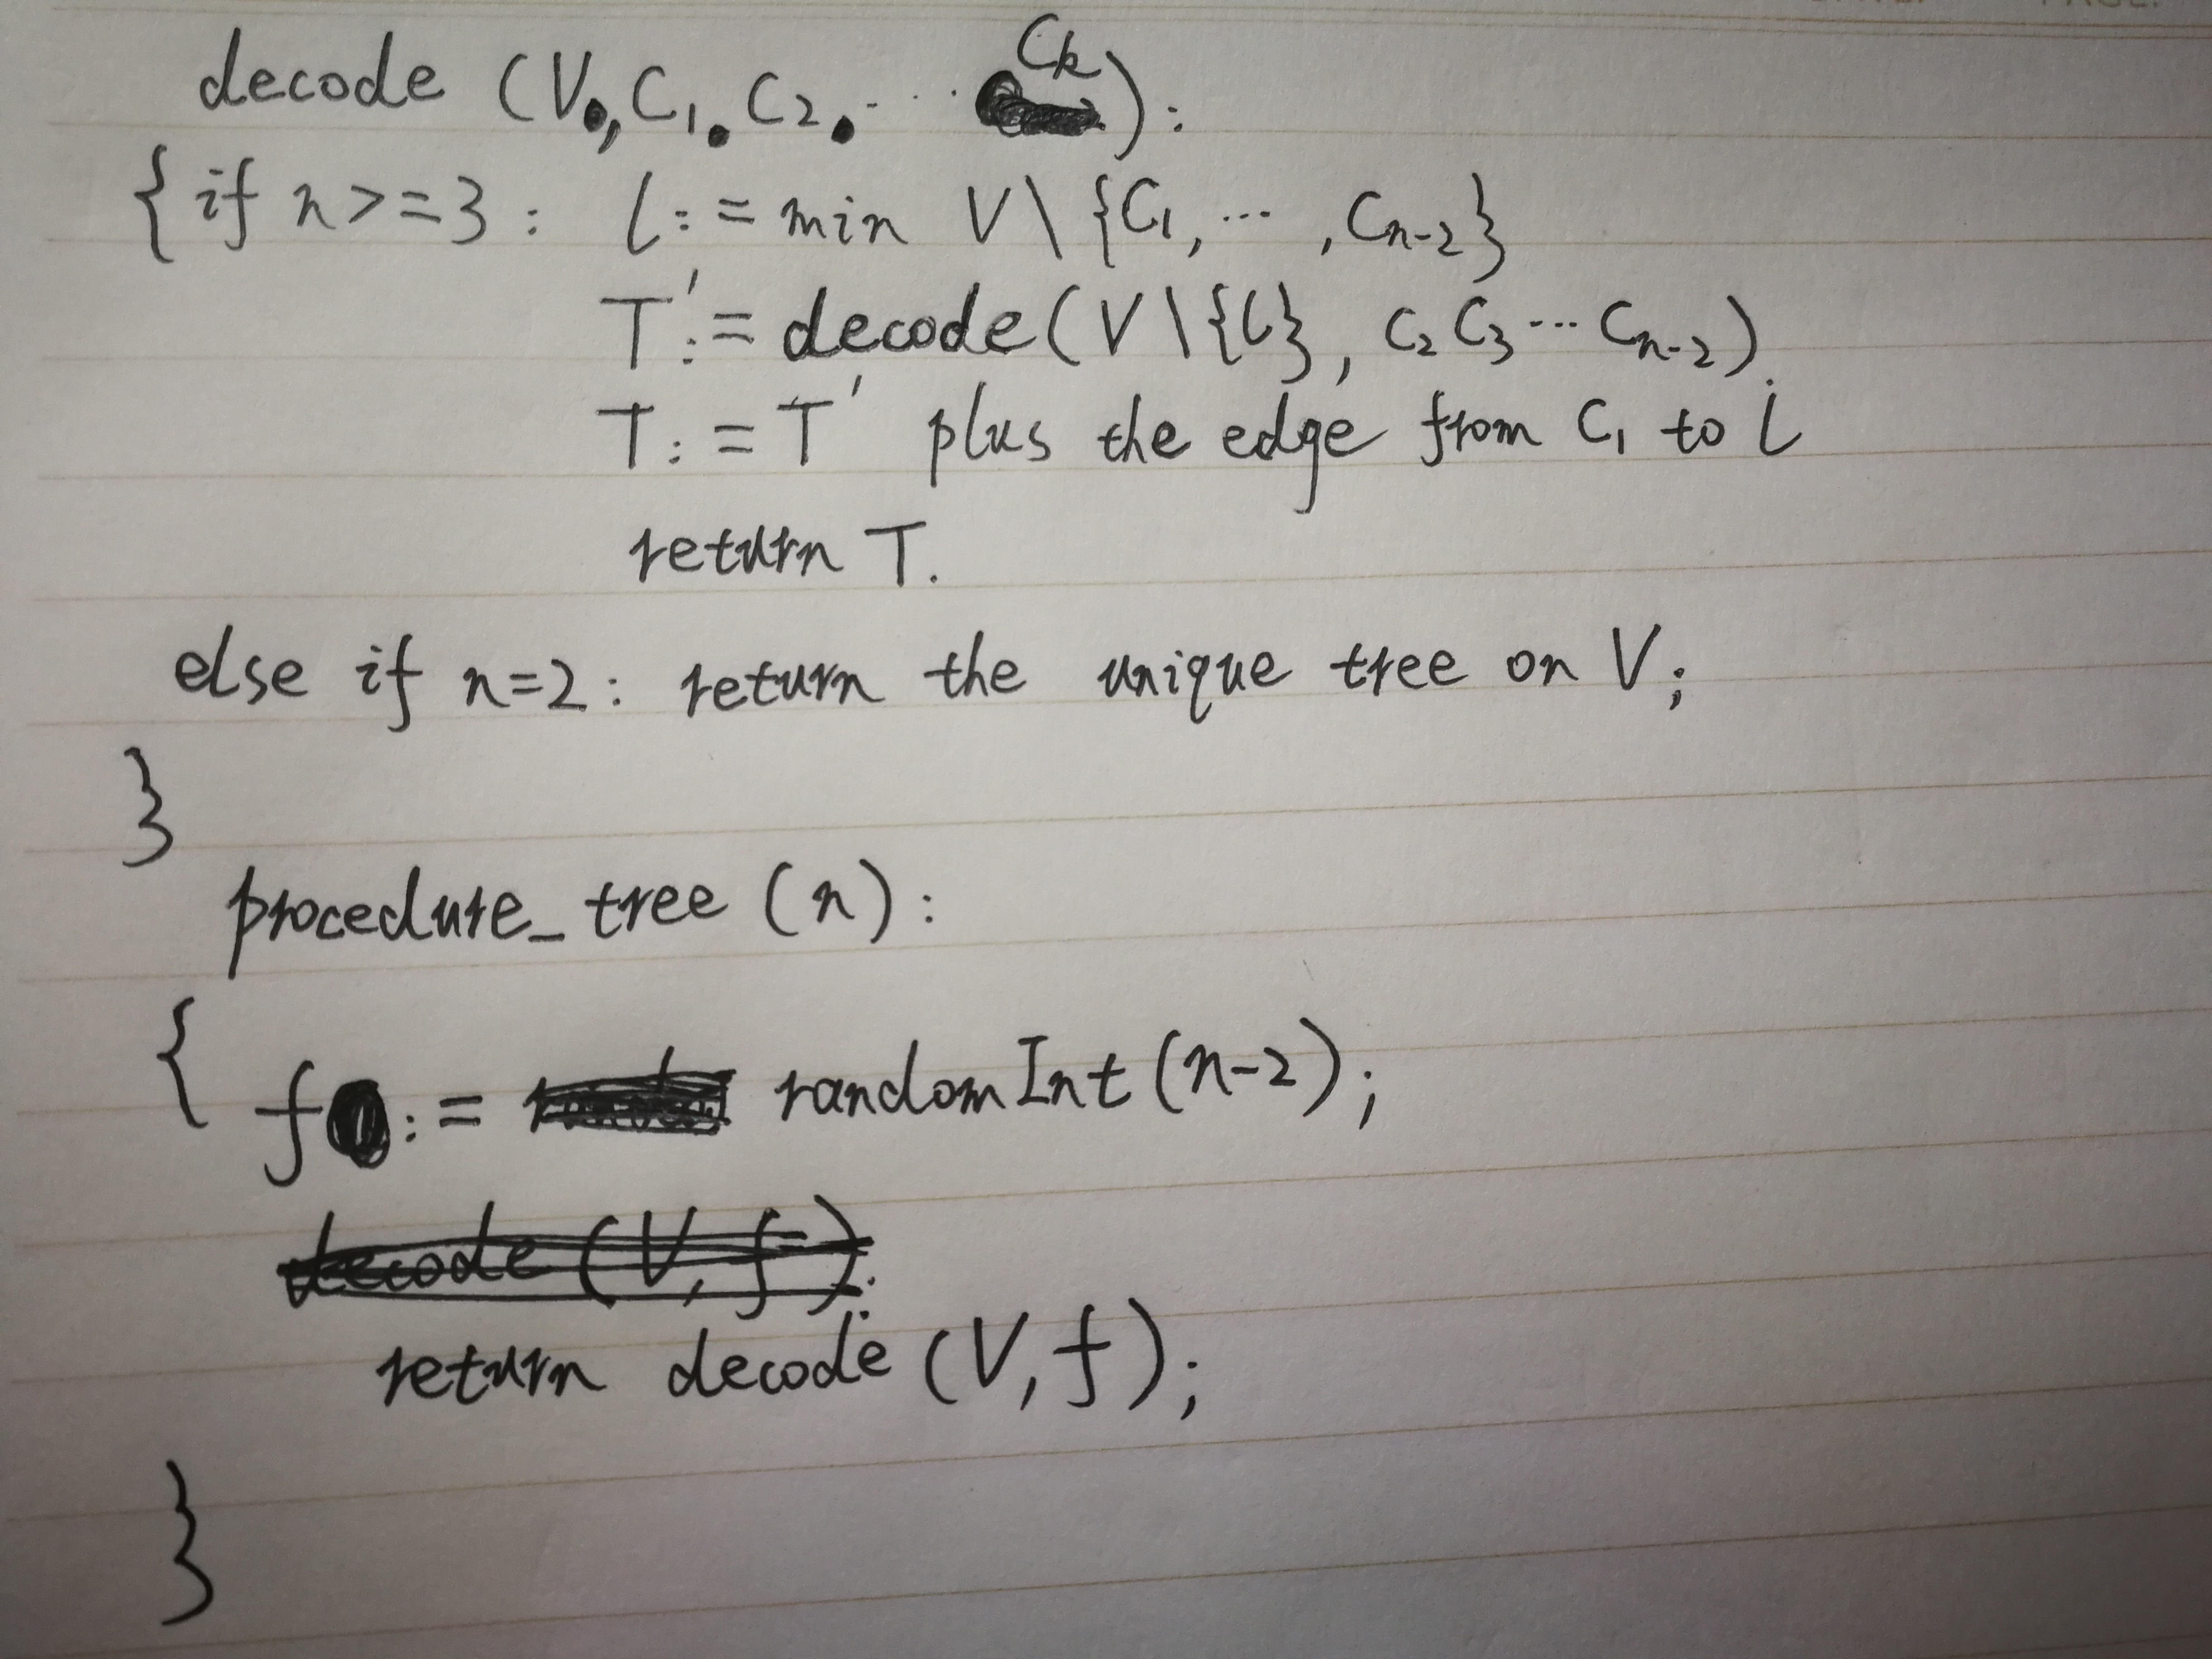 decode (V, C₁. C₂. ... Cₖ):
{ if n >= 3 : l := min V \ {C₁, ... , Cₙ₋₂}
T' := decode(V \ {l}, C₂ C₃ ... Cₙ₋₂).
T := T' plus the edge from C₁ to l
return T.
else if n=2 : return the unique tree on V;
}
procedure_tree (n) :
{
f := randomInt (n-2);
decode (V, f).
return decode (V, f);
}